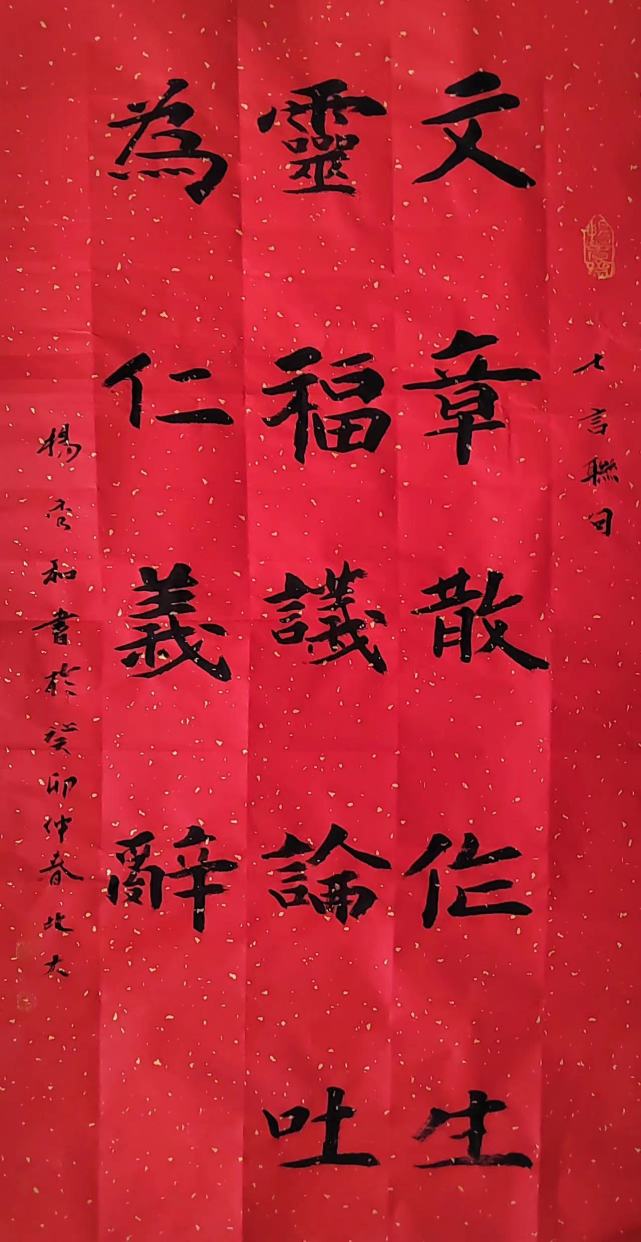 七言聯句
文章散作生
靈福議論吐
為仁義辭
楊杏和書於癸卯仲春北大